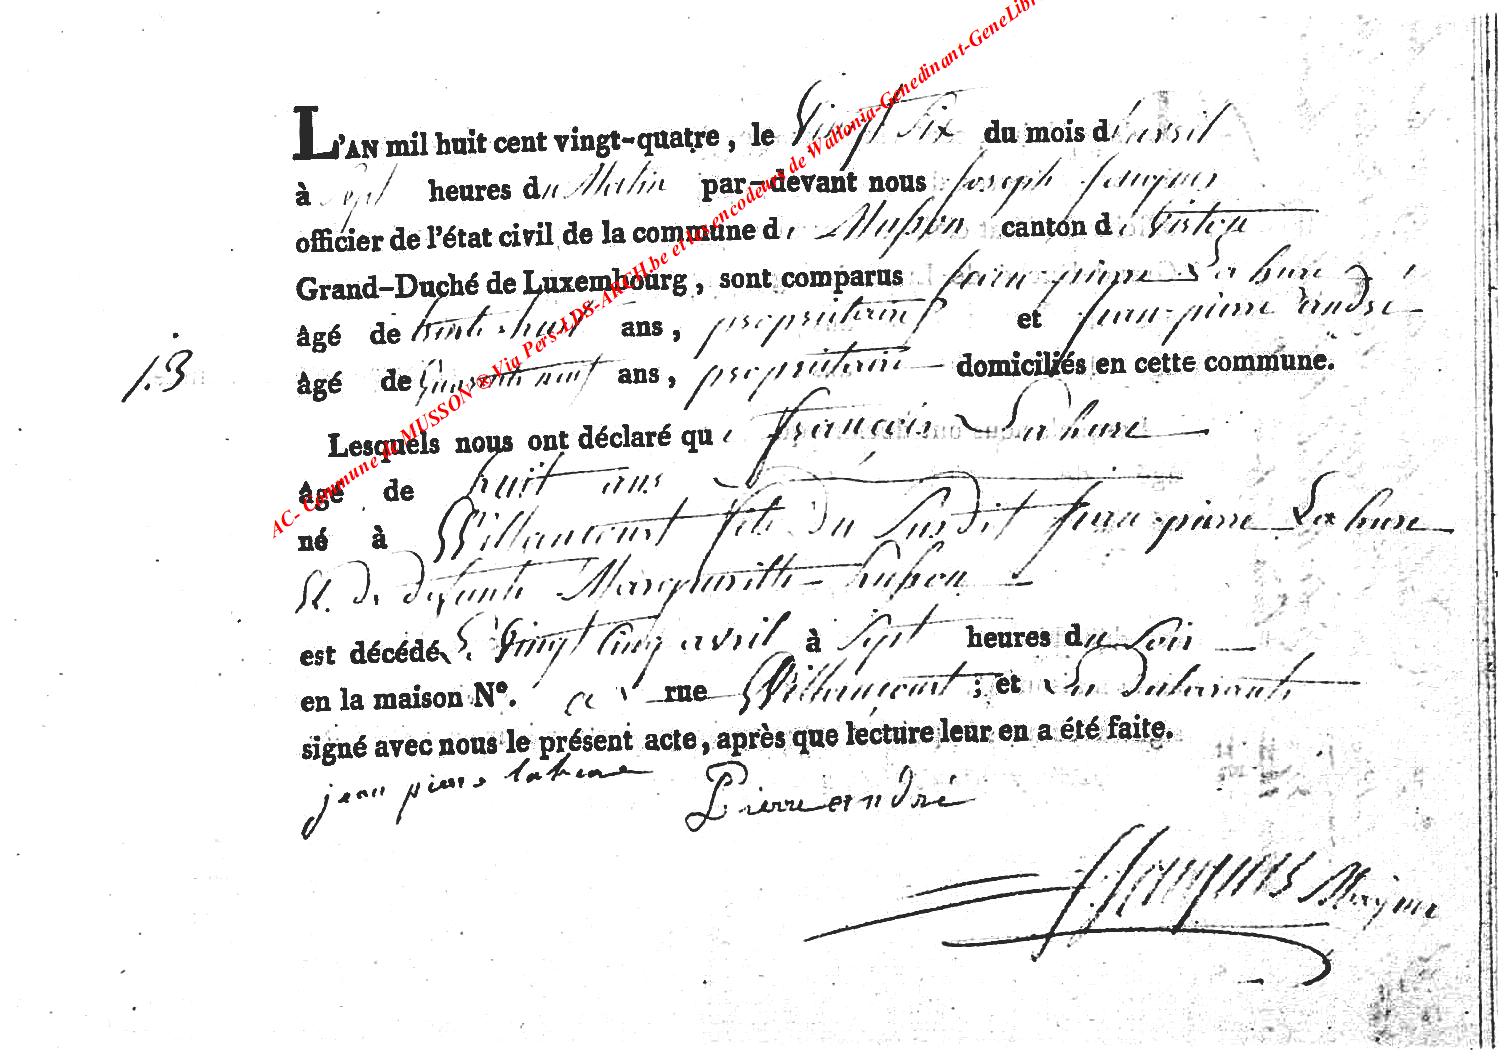 L'AN mil huit cent vingt-quatre, le Vingt Six du mois d'avril
à Sept heures du Matin par-devant nous Joseph Jacques
officier de l'état civil de la commune de Musson canton de Virton
Grand-Duché de Luxembourg, sont comparus Jean-pierre Lahure
âgé de trente huit ans, propriétaire et Jean-pierre andré
âgé de Quarante neuf ans, propriétaire domiciliés en cette commune.
13
Lesquels nous ont déclaré que François Lahure
âgé de huit ans
né à Willancourt fils du Susdit Jean-pierre Lahure
Et de défunte Margueritte husson
est décédé le Vingt Cinq avril à Sept heures du Soir
en la maison N°. rue Willancourt; et Les déclarants
signé avec nous le présent acte, après que lecture leur en a été faite.
jean pierre lahure Pierre andré
J Jacques Mayeur
AC- Commune de MUSSON ® Via Pers-LDS-ARCH.be et les encodeurs de Wallonia-Genedinant-GeneLibr